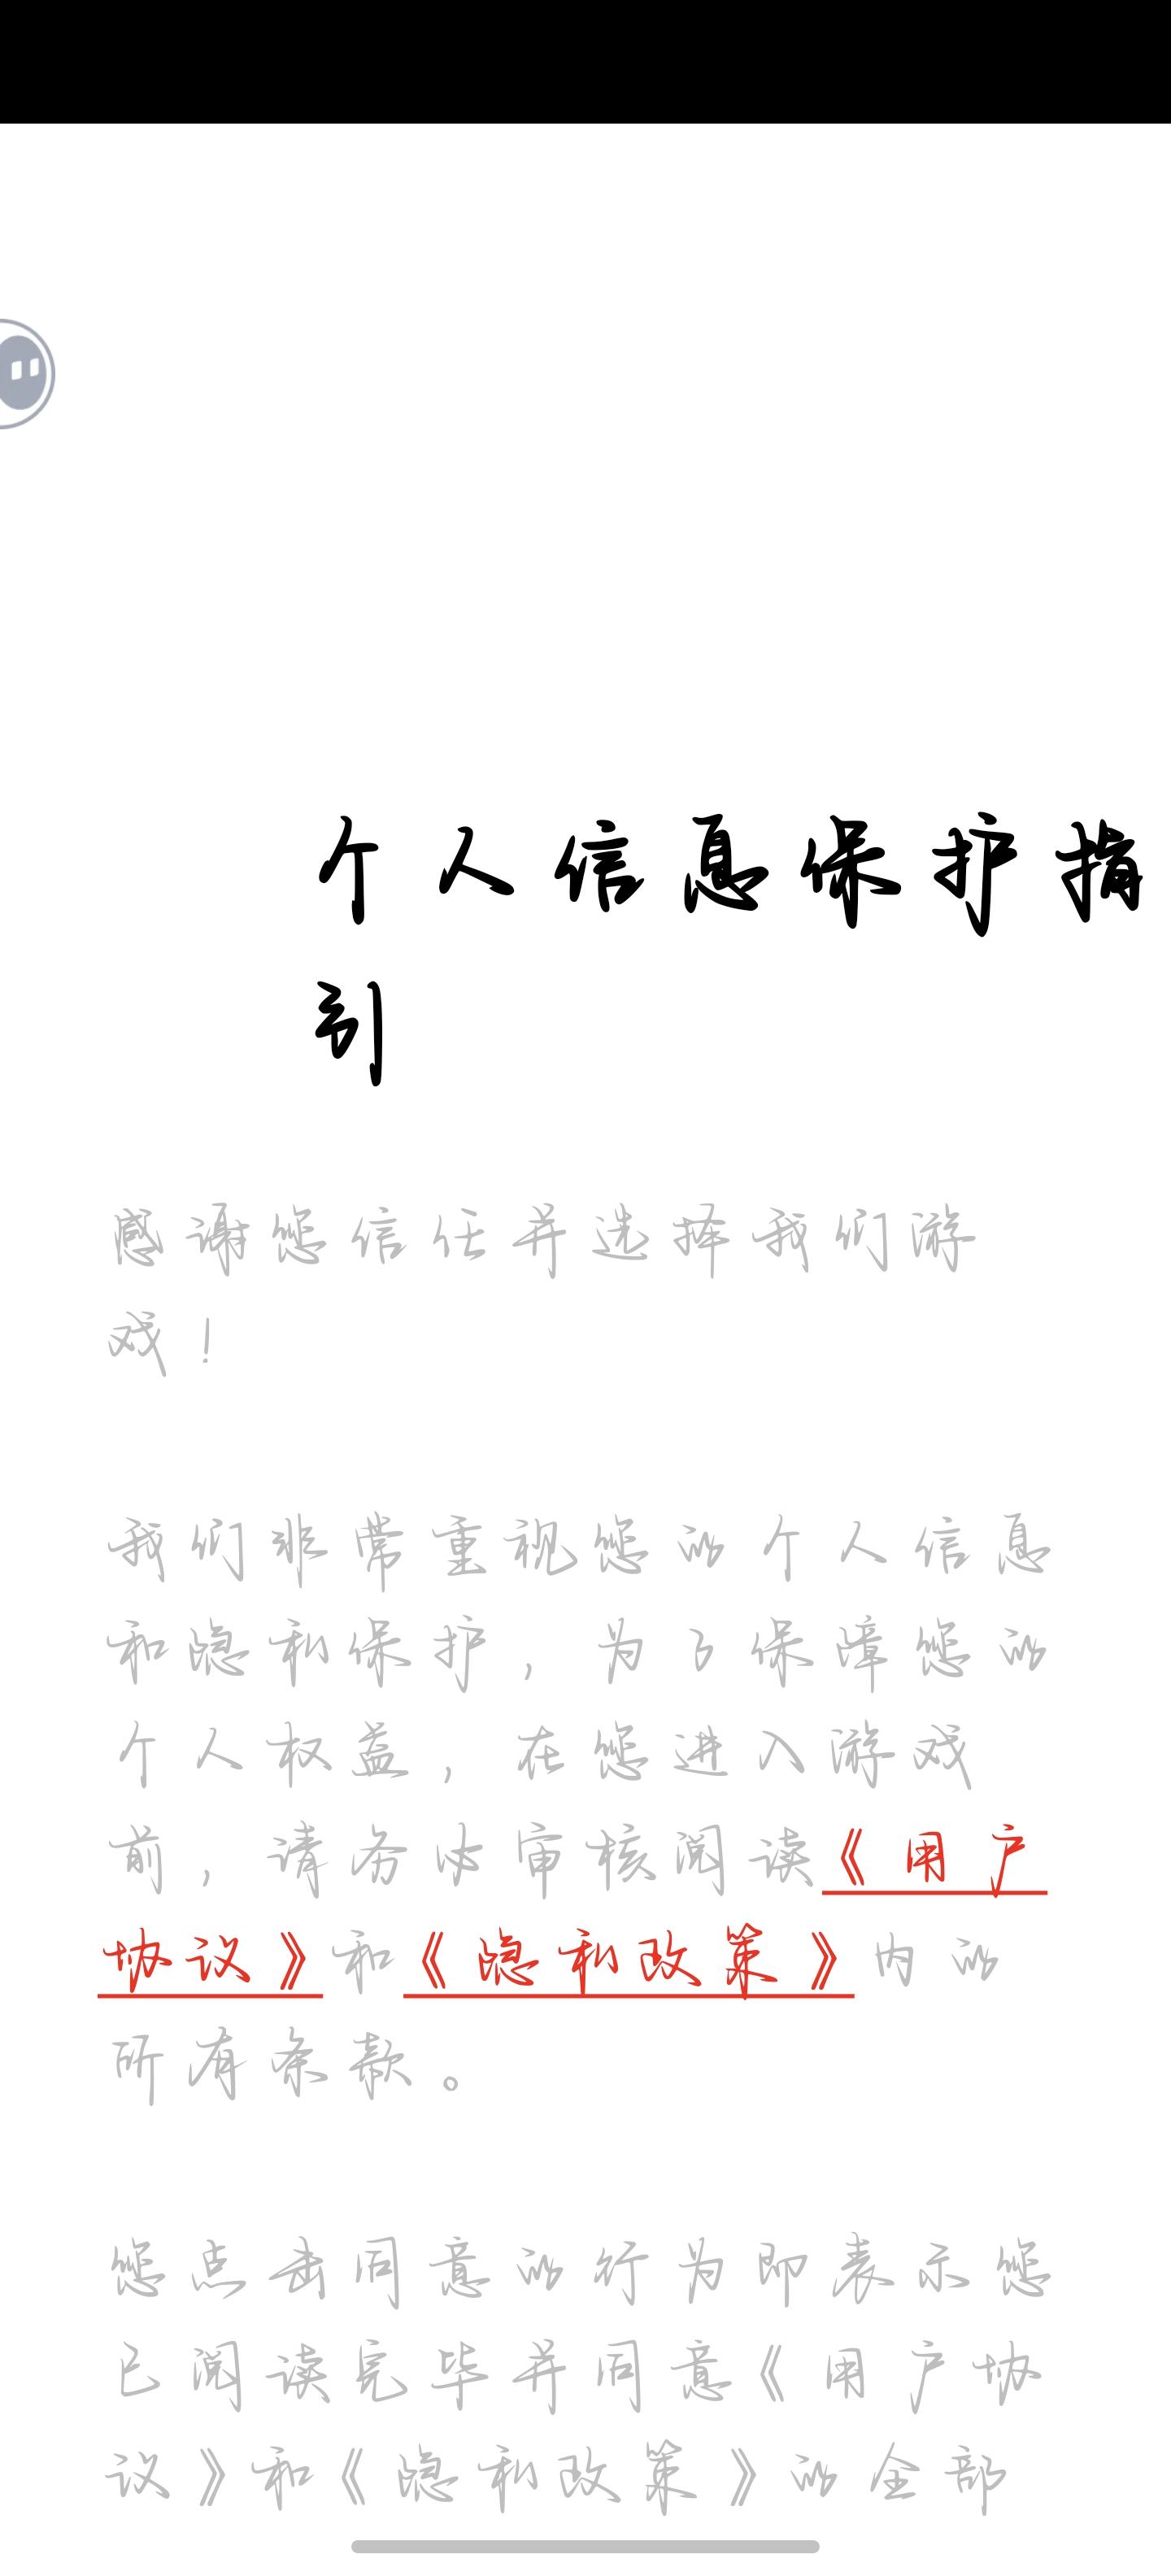 个人信息保护指
引
感谢您信任并选择我们游
戏！
我们非常重视您的个人信息
和隐私保护，为了保障您的
个人权益，在您进入游戏
前，请务必审核阅读《用户
协议》和《隐私政策》内的
所有条款。
您点击同意的行为即表示您
已阅读完毕并同意《用户协
议》和《隐私政策》的全部